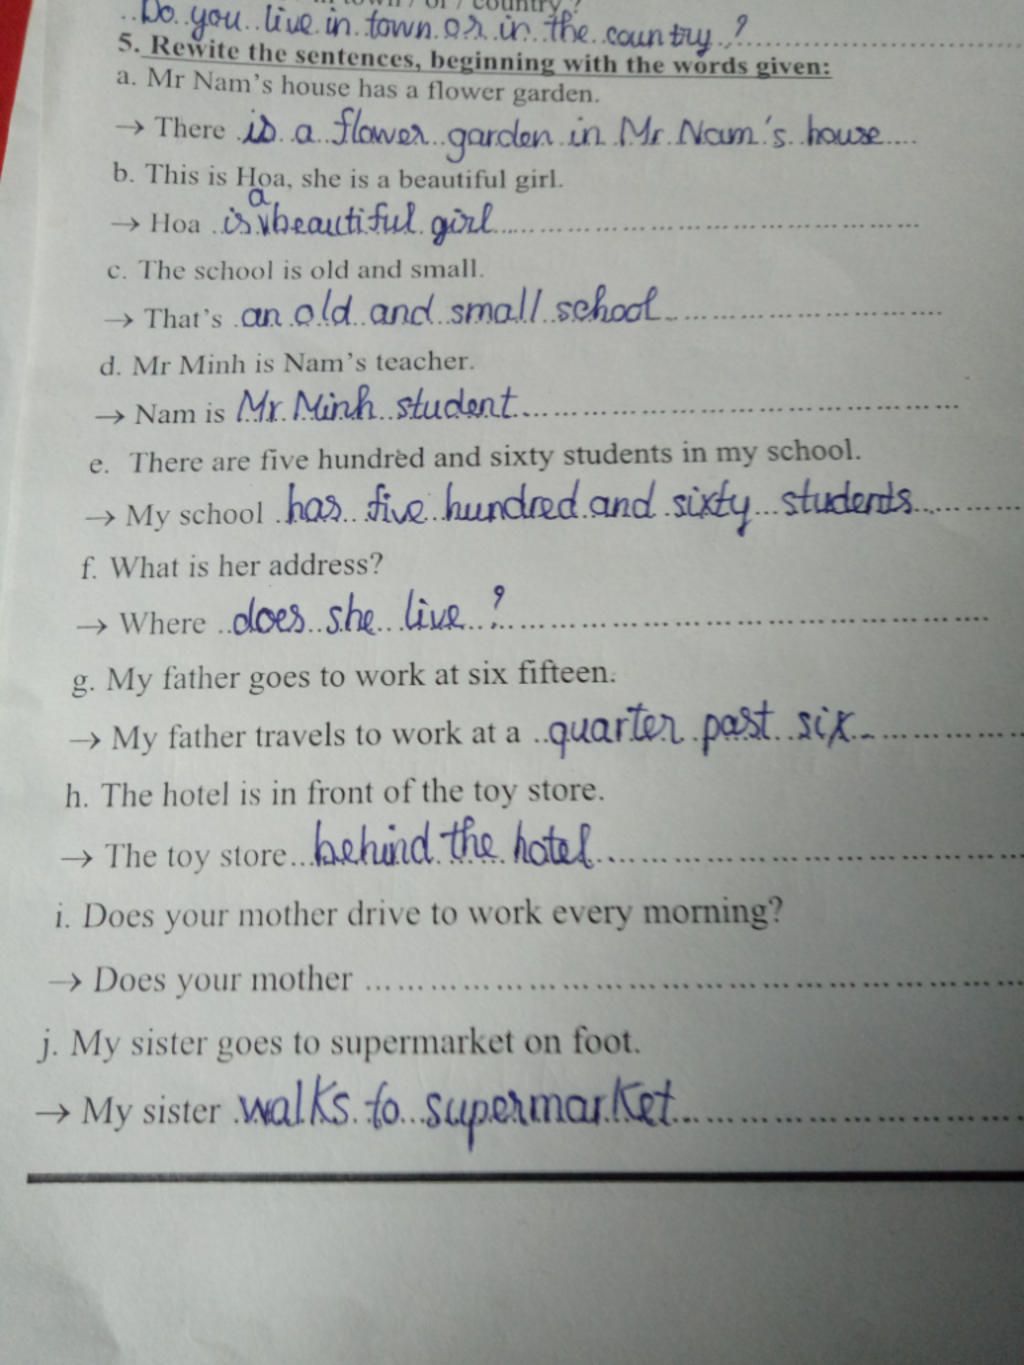 country?
Do you live in town or in the country?
5. Rewite the sentences, beginning with the words given:
a. Mr Nam's house has a flower garden.
→ There is a flower garden in Mr Nam's house
b. This is Hoa, she is a beautiful girl.
→ Hoa is a beautiful girl
c. The school is old and small.
→ That's an old and small school
d. Mr Minh is Nam's teacher.
→ Nam is Mr Minh student
e. There are five hundred and sixty students in my school.
→ My school has five hundred and sixty students
f. What is her address?
→ Where does she live?
g. My father goes to work at six fifteen.
→ My father travels to work at a quarter past six
h. The hotel is in front of the toy store.
→ The toy store behind the hotel
i. Does your mother drive to work every morning?
→ Does your mother
j. My sister goes to supermarket on foot.
→ My sister walks to supermarket